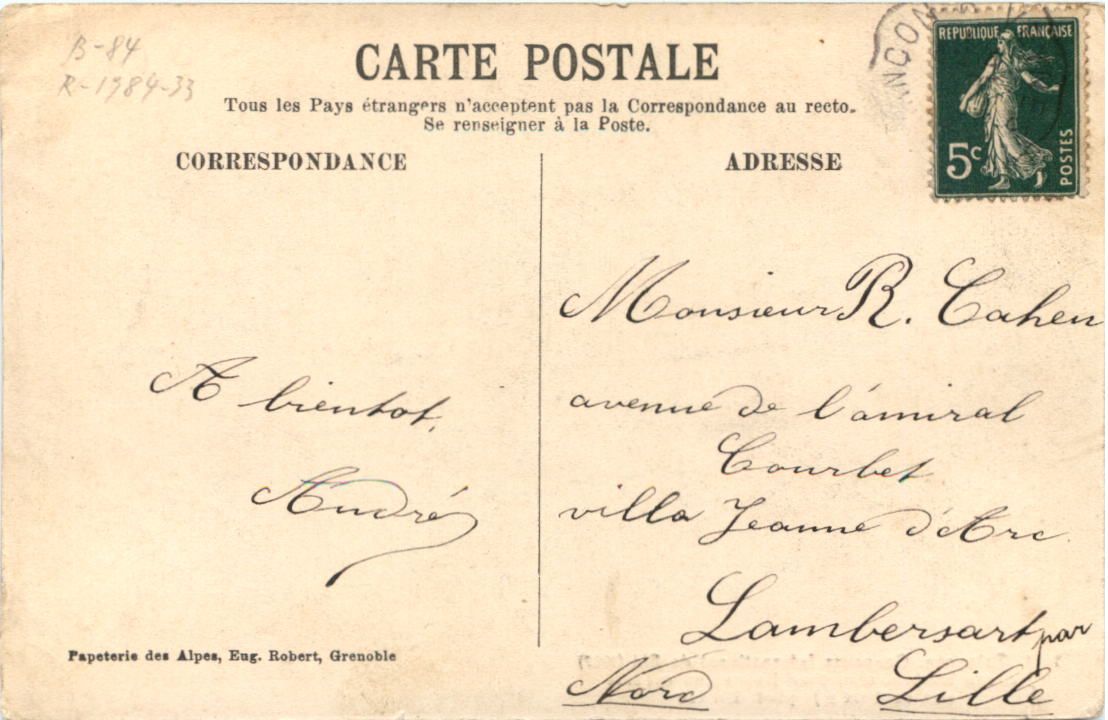 B-84
R-1984-33
CARTE POSTALE
Tous les Pays étrangers n'acceptent pas la Correspondance au recto.
Se renseigner à la Poste.
CORRESPONDANCE
ADRESSE
REPUBLIQUE FRANÇAISE
5c
POSTES
A bientot,
André
Monsieur R. Cahen
avenue de l'amiral
Courbet
villa Jeanne d'Arc
Lambersart par
Nord Lille
Papeterie des Alpes, Eug. Robert, Grenoble